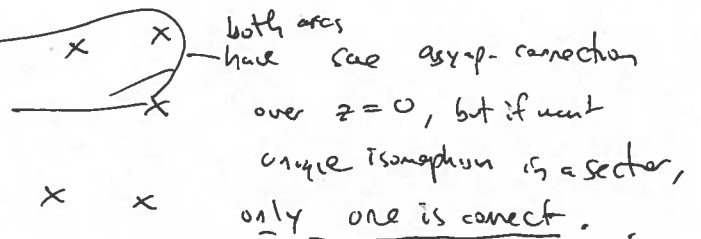 both arcs
have same asymp. connection
over z = 0, but if want
unique isomorphism in a sector,
only one is correct.